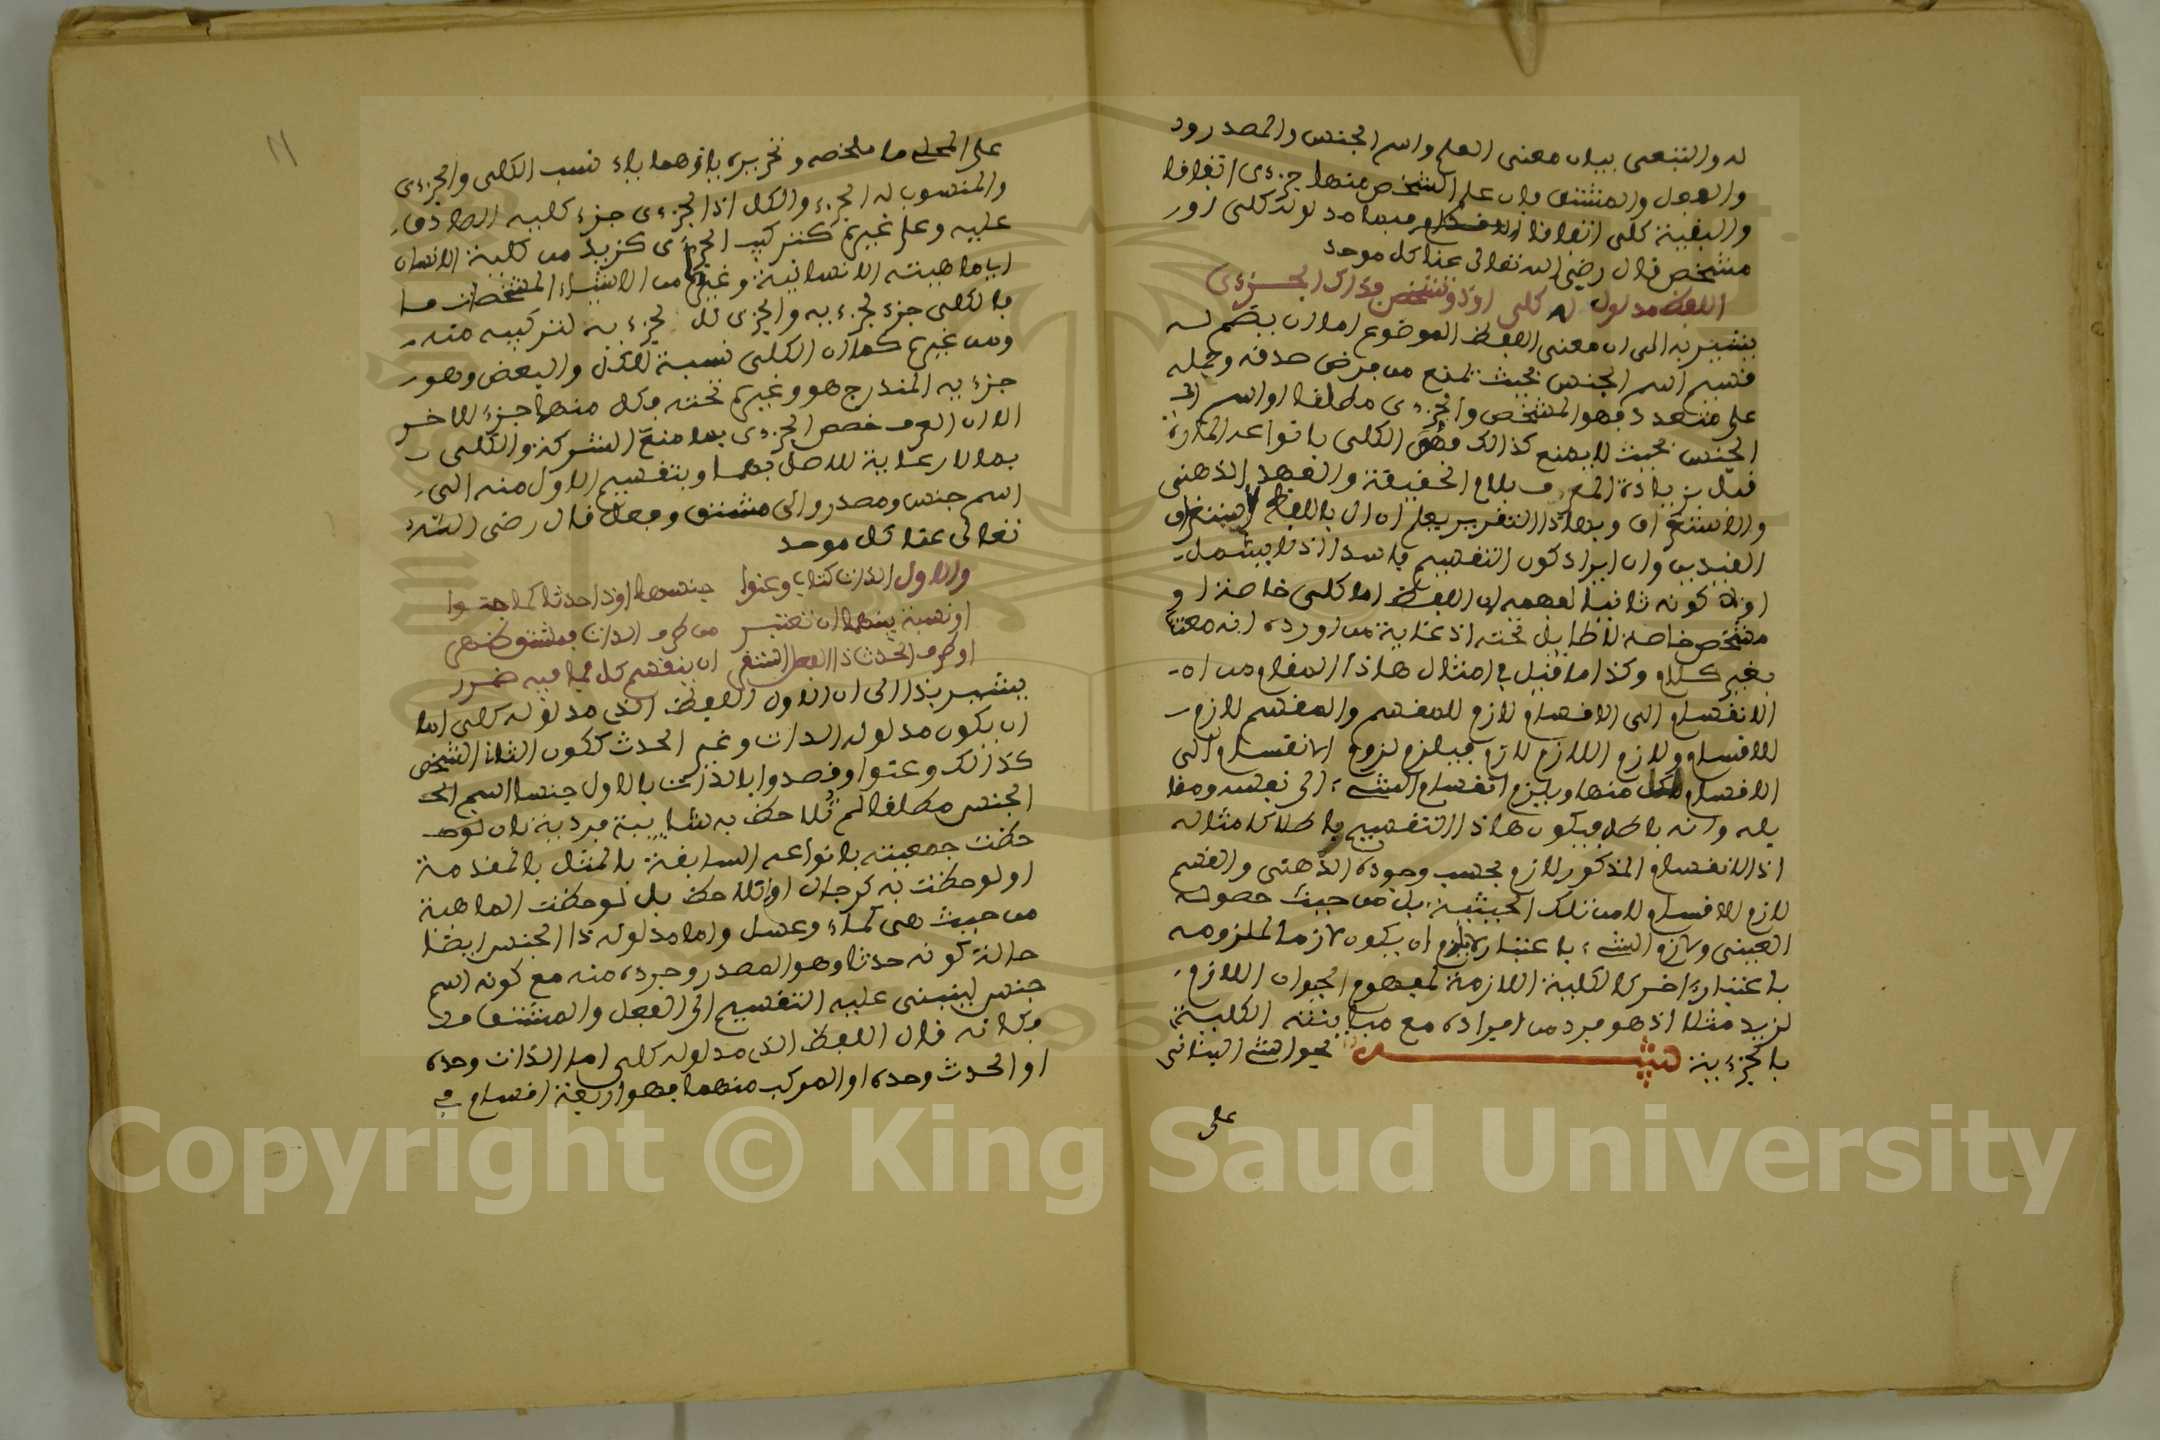 له والتبعى ببيان معنى العلم واسم الجنس والمصدر ود
والفعل والمشتق بان علم الشخص منها جزءى اتفاقا
والبقية كلى اتفاقا مدلوله كلى اور
مشخص قال رضي الله تعالى عنا كل موحد
اللفظ مدلول له كلى اوذو تشخص وذاك الجزءى
يشير به الى ان معنى اللفظ الموضوع اما ان يضم له
قسيم اسم الجنس بحيث تمنع من فرض صدقه وحمله
على متعدد فهو المشخص والجزءى مطلقا او اسم
الجنس بحيث لا يمنع كذالك فهو الكلى بانواعه المارة
قبل بزيادة المعرف بلام الحقيقة والعهد الذهنى
والاستغراق وبهاذا التقرير يعلم ان ال باللفظ لاستغراق
القيدين وان ايراد كون التقسيم فاسدا اذ لا يشمل
اولا كونه ثانيا لفهمه ان اللفظ اما كلى خاصة او
مشخص خاصة لا طايل تحته اذ غاية من اورده انه معتن
بغير كلام وكذا ما قيل في امثال هاذا المقام من ان
الانقسام الى الاقسام لازم للمقسم والمقسم لازم
للاقسام ولازم اللازم لازم فيلزم لزوم الانقسام الى
الاقسام لكل منها ويلزم انقسام الشىء الى نفسه ومقا
بله وانه باطل فيكون هاذا التقسيم باطلا كامثاله
اذ الانقسام المذكور لازم بحسب وجوده الذهنى والقسم
لازم للاقسام لا من تلك الحيثية بل من حيث حصوله
العينى ولازم الشىء باعتبار لا يلزم ان يكون لازما لملزومه
باعتبار اخر كالكلية اللازمة لمفهوم الحيوان اللازم
لزيد مثلا اذ هو فرد من افراده مع مباينته الكلية
بالجزءية تنبيه لحواشى البنانى
على
على المحلى ما ملخصه وتحريره ياوهما ياء نسب الكلى والجزءى
والمنسوب له الجزء والكل اذ الجزءى جزء كليه الصادق
عليه وعلى غيره كتركيب الجزءى كزيد من كلية الانسان
اى ماهيته الانسانية وغيرها من الاشياء المشخصات
فالكلى جزء لجزءيه والجزءى كل لجزءيه لتركيبه منه
ومن غيره كما ان الكلى نسبة للكل والبعض وهو
جزءيه المندرج هو وغيره تحته فكل منها جزء للاخر
الا ان العرف خصص الجزءى بما منع الشركة والكلى
بما لا رعاية للاصل فيهما وبتقسيم الاول منه الى
اسم جنس ومصدر والى مشتق وفعل قال رضى الله
تعالى عنا كل موحد
والاول الذات كتاب وعنوا جنسها اوذا حدثا كما جنوا
او نسبة بينهما ان تعتبر من طرف الذات فمشتق ظهر
او طرف الحدث ذا الفعل اشتهر ان ينقسم كل فما فيه ضرر
يشير بذا الى ان الاول اللفظ الذى مدلوله كلى اما
ان يكون مدلوله الذات وغير الحدث ككون الثانى الشخص
كذالك وعنوا وقصدوا بالذات بالاول جنسا اسم
الجنس مطلقا لم تلاحظ به شايبة فردية بان لوحـ
ـظت جمعيته بانواعه السابقة بالمثل بالمقدمة
او لوحظت به كرجل او لم تلاحظ بل لوحظت الماهية
من حيث هى كماء وعسل واما مدلوله ذا الجنس ايضا
حالة كونه حدثا وهو المصدر وجرده منه مع كونه اسم
جنس لينبنى عليه التقسيم الى الفعل والمشتق
فكانه قال اللفظ الذى مدلوله كلى اما الذات وحده
او الحدث وحده او المركب منهما فهو اربعة اقسام في
١١
Copyright © King Saud University